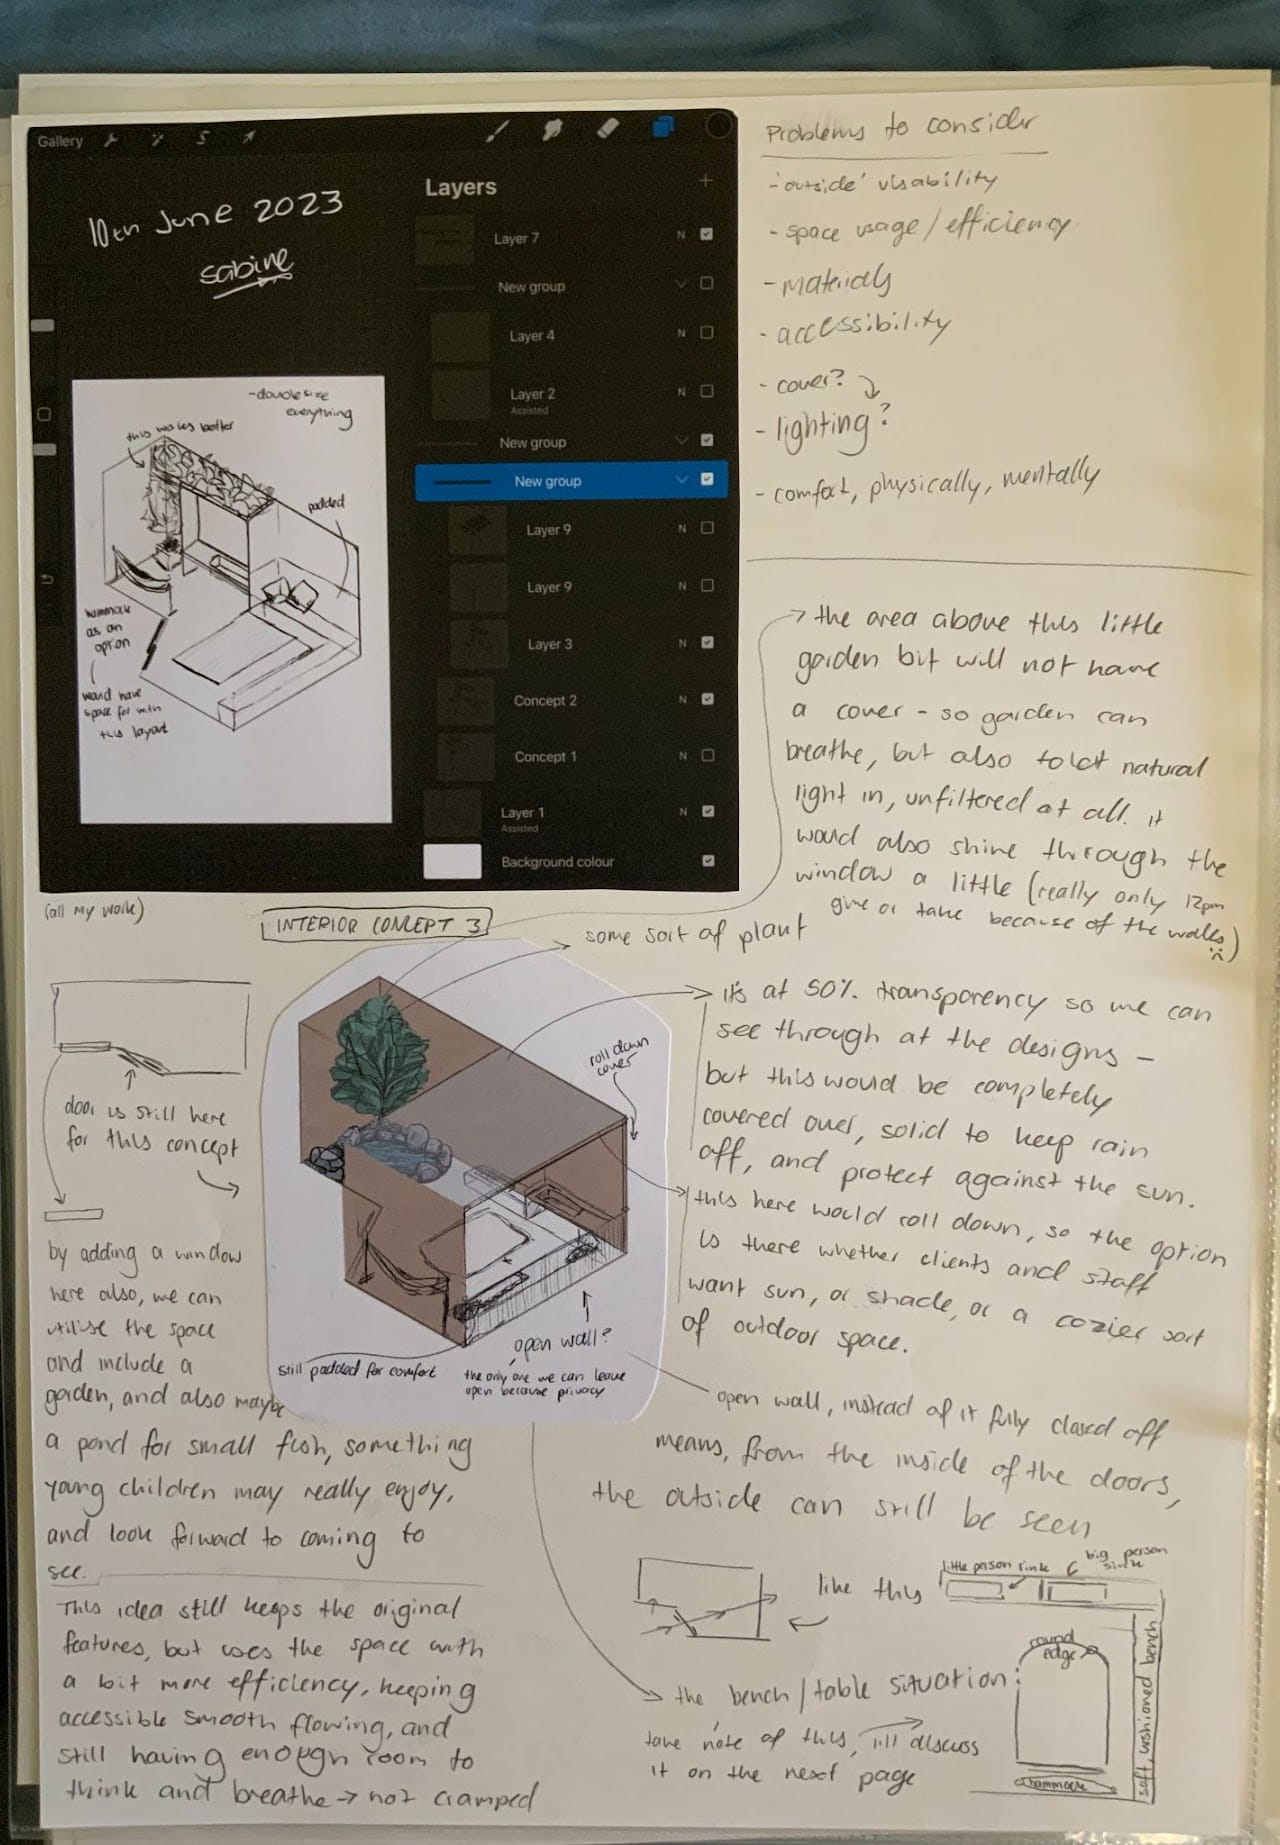 Gallery
10th June 2023
sabine
Layers
Layer 7
N
New group
Layer 4
N
Layer 2
N
Assisted
New group
New group
Layer 9
N
Layer 9
N
Layer 3
N
Concept 2
N
Concept 1
N
Layer 1
N
Assisted
Background colour
-double size
everything
this works better
padded
hammock
as an
option
would have
space for with
this layout
(all my work)
Problems to consider
-'outside' visability
- space usage/efficiency
- materials
- accessibility
- cover?
- lighting?
- comfort, physically, mentally
the area above this little
garden bit will not have
a cover - so garden can
breathe, but also to let natural
light in, unfiltered at all. it
would also shine through the
window a little (really only 12pm
give or take because of the walls)
INTERIOR CONCEPT 3
some sort of plant
it's at 50% transparency so we can
see through at the designs -
but this would be completely
covered over, solid to keep rain
off, and protect against the sun.
roll down
cover
this here would roll down, so the option
is there whether clients and staff
want sun, or shade, or a cozier sort
of outdoor space.
door is still here
for this concept
by adding a window
here also, we can
utilise the space
and include a
garden, and also maybe
a pond for small fish, something
young children may really enjoy,
and look forward to coming to
see.
still padded for comfort
open wall?
the only one we can leave
open because privacy
open wall, instead of it fully closed off
means, from the inside of the doors,
the outside can still be seen
like this
This idea still keeps the original
features, but uses the space with
a bit more efficiency, keeping
accessible smooth flowing, and
still having enough room to
think and breathe → not cramped
the bench/table situation:
take note of this, i'll discuss
it on the next page
little person sink
big person
sink
round
edge
soft, cushioned bench
hammock